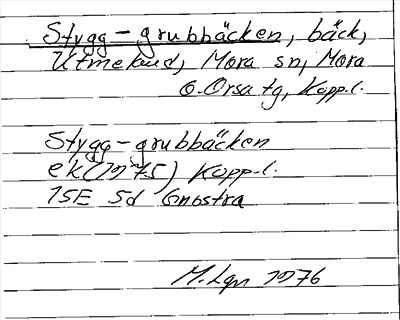 Stygg-grubbäcken, bäck,
Utmeland, Mora sn, Mora
o. Orsa tg, Kopp.l.
Stygg-grubbäcken
ek (1975) Kopp.l.
15E Sd Gnostra
M.Lgn 1976